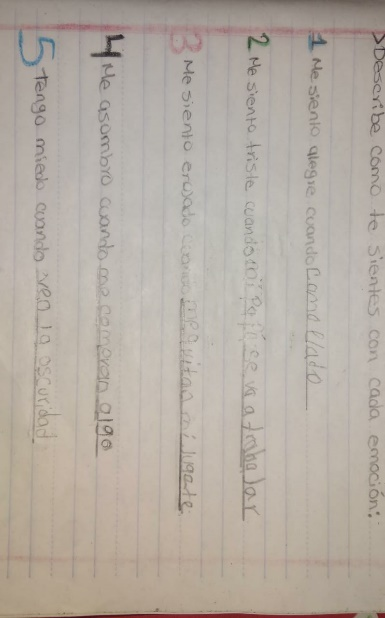 Describe como te sientes con cada emoción:
1 Me siento alegre cuando Come elado
2 Me siento triste cuando mi Papi se va a trabalar
3 Me siento enojado cuando me quitan mi jugete.
4 Me asombro cuando me compran algo
5 Tengo miedo cuando ven la oscuridad